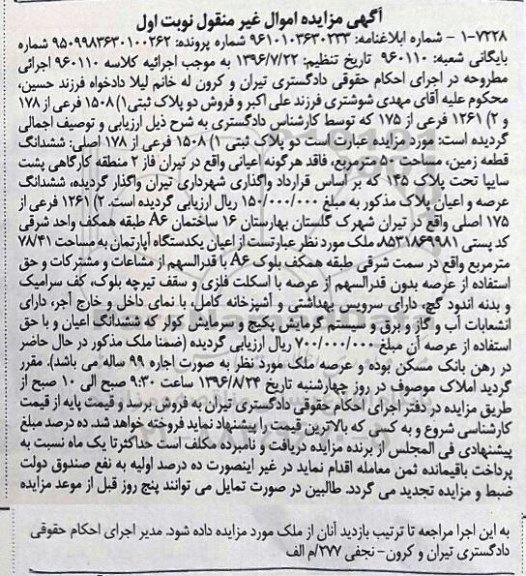 آگهی مزایده اموال غیر منقول نوبت اول
۱-۷۲۲۸ - شماره ابلاغنامه: ۹۶۱۰۱۰۳۶۳۰۲۳۳ شماره پرونده: ۹۵۰۹۹۸۳۶۳۰۱۰۰۲۶۲ شماره
بایگانی شعبه: ۹۶۰۱۱۰ تاریخ تنظیم: ۱۳۹۶/۷/۲۲ به موجب اجرائیه کلاسه ۹۶۰۱۱۰ اجرائی
مطروحه در اجرای احکام حقوقی دادگستری تیران و کرون له خانم لیلا دادخواه فرزند حسین،
محکوم علیه آقای مهدی شوشتری فرزند علی اکبر و فروش دو پلاک ثبتی۱) ۱۵۰۸ فرعی از ۱۷۸
و ۲) ۱۲۶۱ فرعی از ۱۷۵ که توسط کارشناس دادگستری به شرح ذیل ارزیابی و توصیف اجمالی
گردیده است: مورد مزایده عبارت است دو پلاک ثبتی ۱) ۱۵۰۸ فرعی از ۱۷۸ اصلی: ششدانگ
قطعه زمین، مساحت ۵۰ مترمربع، فاقد هرگونه اعیانی واقع در تیران فاز ۲ منطقه کارگاهی پشت
سایپا تحت پلاک ۱۴۵ که بر اساس قرارداد واگذاری شهرداری تیران واگذار گردیده، ششدانگ
عرصه و اعیان پلاک مذکور به مبلغ ۱۵۰/۰۰۰/۰۰۰ ریال ارزیابی گردیده است. ۲) ۱۲۶۱ فرعی از
۱۷۵ اصلی واقع در تیران شهرک گلستان بهارستان ۱۶ ساختمان A۶ طبقه همکف واحد شرقی
کد پستی ۸۵۳۱۸۶۹۹۸۱ ملک مورد نظر عبارتست از اعیان یکدستگاه آپارتمان به مساحت ۷۸/۴۱
مترمربع واقع در سمت شرقی طبقه همکف بلوک A۶ با قدرالسهم از مشاعات و مشترکات و حق
استفاده از عرصه بدون قدرالسهم از عرصه با اسکلت فلزی و سقف تیرچه بلوک، کف سرامیک
و بدنه اندود گچ، دارای سرویس بهداشتی و آشپزخانه کامل، با نمای داخل و خارج آجر، دارای
انشعابات آب و گاز و برق و سیستم گرمایش پکیج و سرمایش کولر که ششدانگ اعیان و با حق
استفاده از عرصه آن مبلغ ۷۰۰/۰۰۰/۰۰۰ ریال ارزیابی گردیده (ضمنا ملک مذکور در حال حاضر
در رهن بانک مسکن بوده و عرصه ملک مورد نظر به صورت اجاره ۹۹ ساله می باشد). مقرر
گردید املاک موصوف در روز چهارشنبه تاریخ ۱۳۹۶/۸/۲۴ ساعت ۹:۳۰ صبح الی ۱۰ صبح از
طریق مزایده در دفتر اجرای احکام حقوقی دادگستری تیران به فروش برسد و قیمت پایه از قیمت
کارشناسی شروع و به کسی که بالاترین قیمت را پیشنهاد نماید فروخته خواهد شد. ده درصد مبلغ
پیشنهادی فی المجلس از برنده مزایده دریافت و نامبرده مکلف است حداکثرتا یک ماه نسبت به
پرداخت باقیمانده ثمن معامله اقدام نماید در غیر اینصورت ده درصد اولیه به نفع صندوق دولت
ضبط و مزایده تجدید می گردد. طالبین در صورت تمایل می توانند پنج روز قبل از موعد مزایده
به این اجرا مراجعه تا ترتیب بازدید آنان از ملک مورد مزایده داده شود. مدیر اجرای احکام حقوقی
دادگستری تیران و کرون- نجفی ۲۷۷/م الف